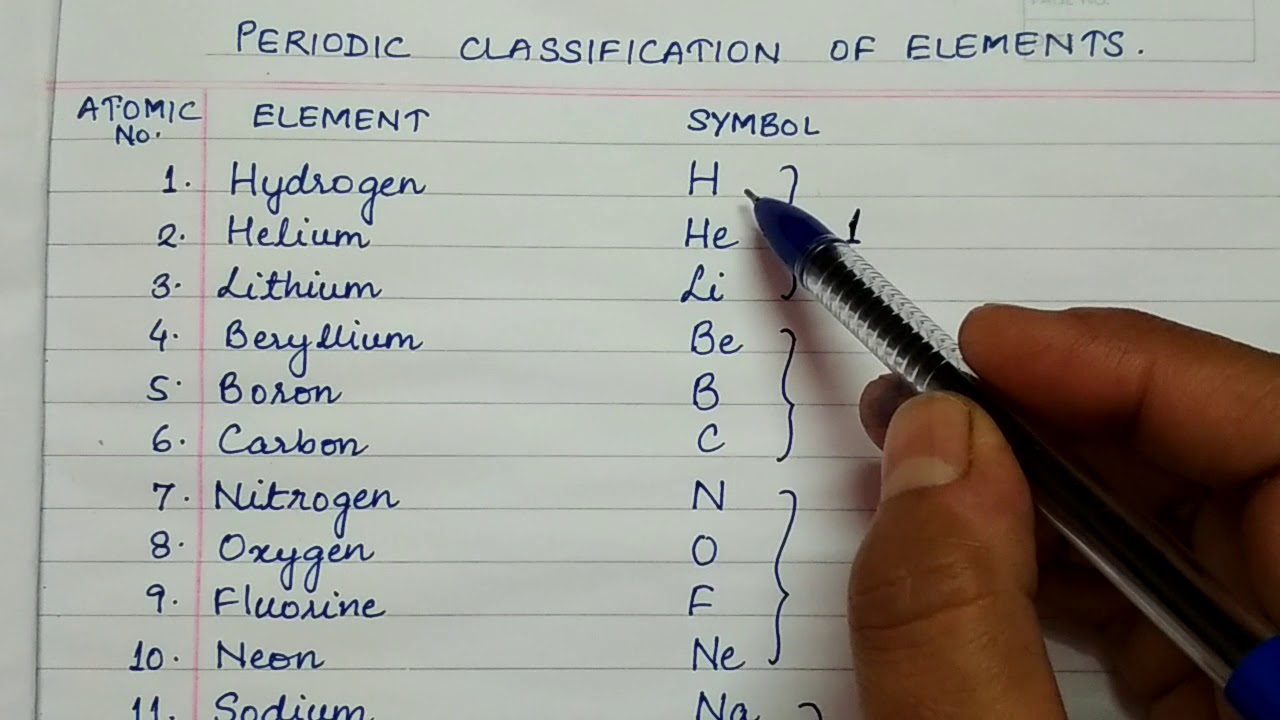 PAGE NO.
PERIODIC CLASSIFICATION OF ELEMENTS.
ATOMIC No. ELEMENT SYMBOL
1. Hydrogen H
2. Helium He 1
3. Lithium Li
4. Beryllium Be
5. Boron B
6. Carbon C
7. Nitrogen N
8. Oxygen O
9. Fluorine F
10. Neon Ne
11. Sodium Na